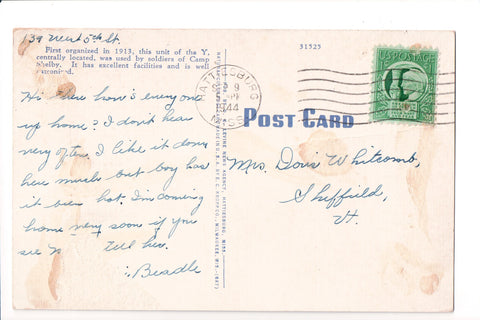 139 West 5th St.
First organized in 1913, this unit of the Y,
centrally located, was used by soldiers of Camp
Shelby. It has excellent facilities and is well
patronized.
Hi there how's everyone
up home? I don't hear
very often. I like it down
here much but boy has
it been hot. I'm coming
home very soon if you
see tell her.
Beadle
31525
HATTIESBURG
9
1944
MISS
POST CARD
U.S. POSTAGE
Mrs. Doris Whitcomb,
Sheffield,
Vt.